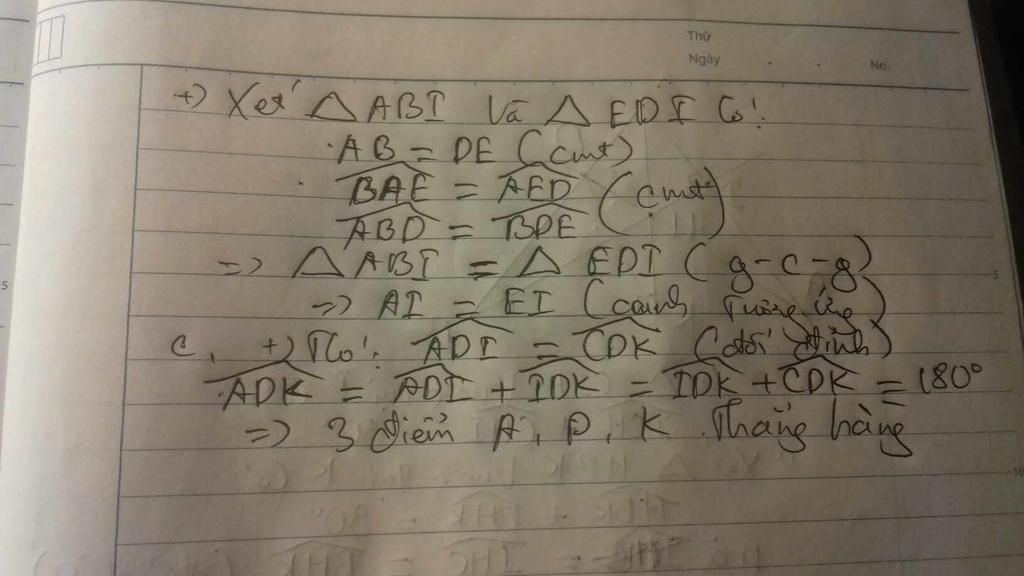 Thứ
Ngày
No.
+) Xet' △ ABI Và △ EDI Có:
AB = DE (cmt)
BAE = AED (cmt)
ABD = BDE
=> △ ABI = △ EDI (g-c-g)
=> AI = EI (cạnh Tương ứng)
c, +) T Có: ADI = CDK (đối đỉnh)
ADK = ADI + IDK = IDK + CDK = 180°
=> 3 điểm A, D, K Thẳng hàng
5
5
10